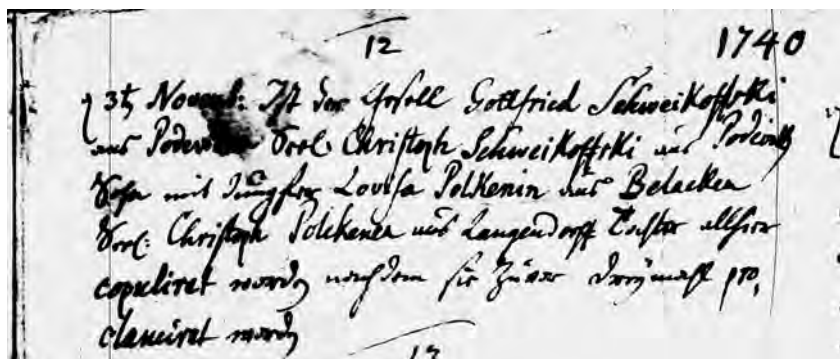 12 1740
3t Novemb: Ist der Gesell Gottfried Schweikoffski
aus Seel: Christoph Schweikoffski aus
Sohn mit Jungfer Lovisa Polkenin aus Belacken
Seel: Christoph Polkenen aus Langendorff Tochter allhier
copulirt worden nachdem sie zuvor dreymahl pro,
clamirt worden